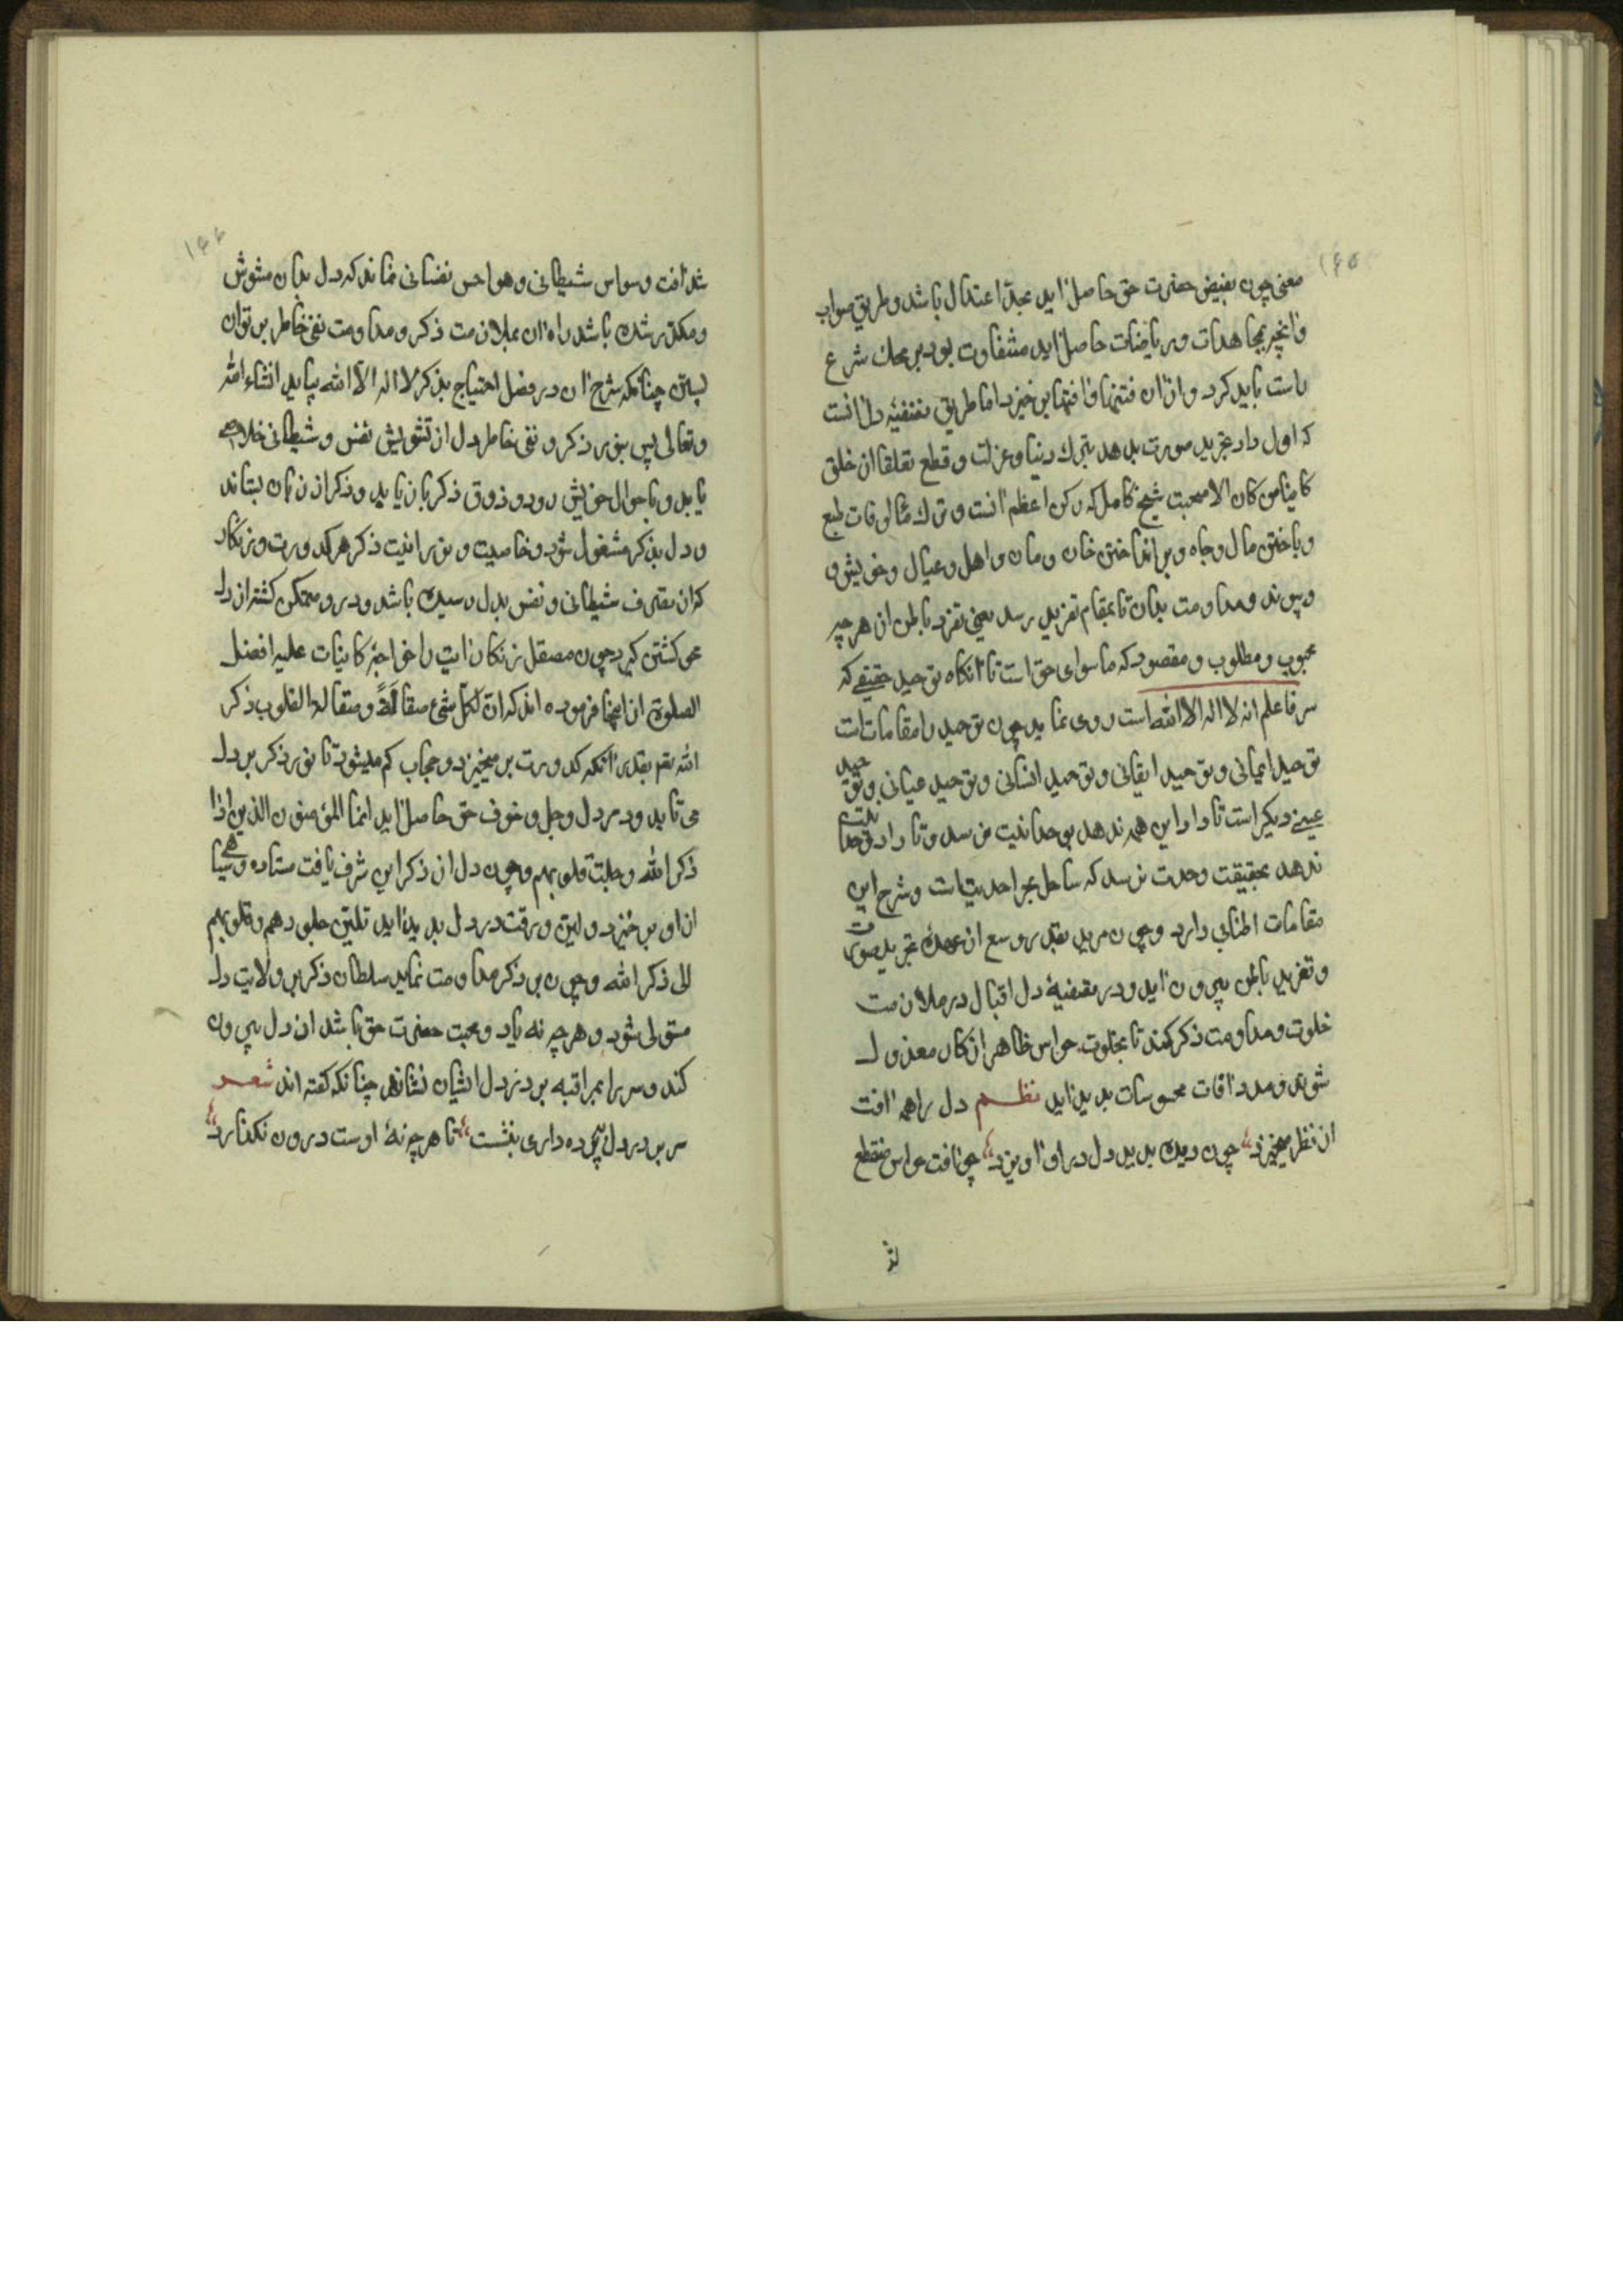 ۱۶۵
معنی چون بفیض حضرت حق حاصل آید بحد اعتدال باشد و طریق صواب
و آنچه بمجاهدات و ریاضات حاصل آید متفاوت بود بر محک شرع
راست باید کرد و از آن فتنها و آفتها بر خیزد اما طریق تصفیه دل آنست
که اول داد تجرید صورت بدهد بترک دنیا و عزلت و قطع تعلقا از خلق
کاینا من کان الا صحبت شیخ کامل که رکن اعظم آنست و ترک مالوفات طبع
و باختن مال و جاه و بر انداختن خان و مان و اهل و عیال و خویش و
و پیوند و مداومت بدان تا بمقام تفرید رسد یعنی تفرد باطن از هر چه
محبوب و مطلوب و مقصود که ماسوای حق است تا آنگاه توحید حقیقی که
سر فاعلم انه لا اله الا الله است روی نماید چون توحید را مقامات است
توحید ایمانی و توحید ایقانی و توحید احسانی و توحید عیانی و توحید
عینی دیگر است تا داد این همه ندهد بوحدانیت نرسد و تا داد وحدانیت
ندهد بحقیقت وحدت نرسد که ساحل بحر احدیت است و شرح این
مقامات اطنابی دارد و چون مرید بقدر وسع از عهدهٔ تجرید صورت
و تفرید باطن بیرون آید و در تصفیهٔ دل اقبال در ملازمت
خلوت و مداومت ذکر کند تا بخلوت حواس ظاهر از کار معزول
شوند و مدد آفات محسوسات بدید آید نظم دل را همه آفت
از نظر میخیزد چون دیده بدید دل در او آویزد چو آفت حواس منقطع
شد
۱۶۶
شد آفت وسواس شیطانی و هواجس نفسانی نماند که دل بدان مشوش
و مکدر شده باشد راه آن بملازمت ذکر و مداومت نفی خاطر بر توان
بستن چنانکه شرح آن در فصل احتیاج بذکر لا اله الا الله بیاید انشاء الله
و تعالی پس بنور ذکر و نفی خاطر دل از تشویش نفس و شیطانی خلاصی
یابد و باحوال خویش رود و ذوق ذکر باز یابد و ذکر از زبان بستاند
و دل بذکر مشغول شود و خاصیت و نورانیت ذکر هر کدورت و زنکار
که از تصرف شیطانی و نفس بدل رسیده باشد و در و متمکن کشته از دل
محو کشتن کیرد چون مصقل زنکار است را خواجهٔ کاینات علیه افضل
الصلوة از اینجا فرموده اند که ان لکل شیء صقالة و صقالة القلوب ذکر
الله تعم بقدر آنکه کدورت بر میخیزد و حجاب کم میشود تا نور ذکر بر دل
می تابد و در دل وجل و خوف حق حاصل آید انما المؤمنون الذین اذا
ذکر الله وجلت قلوبهم و چون دل از ذکر این شرف یافت
از او بر خیزد و لین و رقت در دل بدید آید تلین جلودهم و قلوبهم
الی ذکر الله و چون بر ذکر مداومت نماید سلطان ذکر بر ولایت دل
متولی شود و هر چه نه یاد و محبت حضرت حق باشد از دل بیرون
کند و سر را بمراقبه بر در دل ایشان نشاند چنانکه کفته اند شعر
سر بر در دل پرده داری بنشست تا هر چه نه اوست درون نکذارد